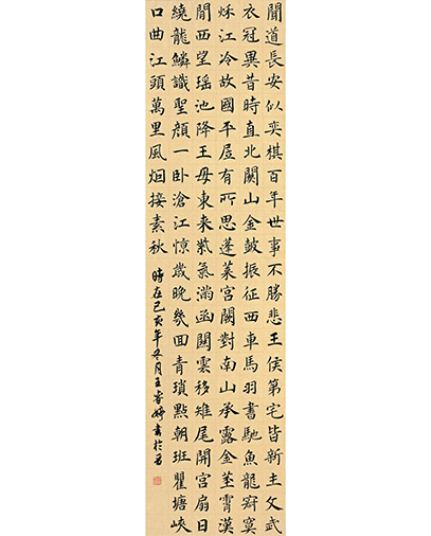 聞道長安似奕棋百年世事不勝悲王侯第宅皆新主文武
衣冠異昔時直北關山金皷振征西車馬羽書馳魚龍寂寞
秋江冷故國平居有所思蓬萊宮闕對南山承露金莖霄漢
間西望瑤池降王母東来紫氣滿函關雲移雉尾開宮扇日
繞龍鱗識聖顏一卧滄江驚歲晚幾回青瑣點朝班瞿塘峽
口曲江頭萬里風烟接素秋
時在己亥年冬月王睿婷書於